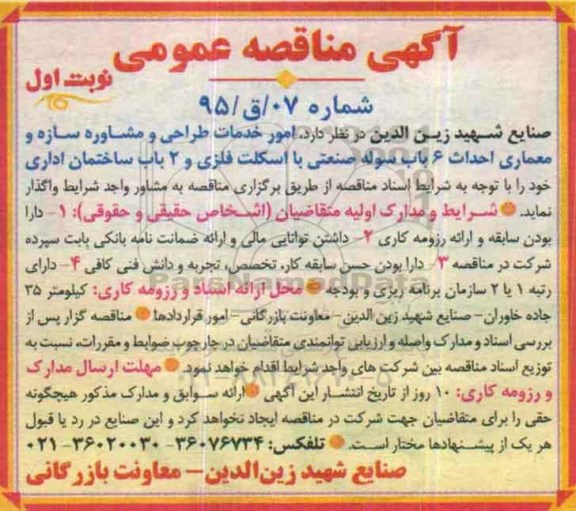 آگهی مناقصه عمومی
نوبت اول
شماره ۰۷/ق/۹۵
صنایع شهید زین الدین در نظر دارد، امور خدمات طراحی و مشاوره سازه و
معماری احداث ۶ باب سوله صنعتی با اسکلت فلزی و ۲ باب ساختمان اداری
خود را با توجه به شرایط اسناد مناقصه از طریق برگزاری مناقصه به مشاور واجد شرایط واگذار
نماید. شرایط و مدارک اولیه متقاضیان (اشخاص حقیقی و حقوقی): ۱- دارا
بودن سابقه و ارائه رزومه کاری ۲- داشتن توانایی مالی و ارائه ضمانت نامه بانکی بابت سپرده
شرکت در مناقصه ۳- دارا بودن حسن سابقه کار، تخصص، تجربه و دانش فنی کافی ۴- دارای
رتبه ۱ یا ۲ سازمان برنامه ریزی و بودجه محل ارائه اسناد و رزومه کاری: کیلومتر ۳۵
جاده خاوران- صنایع شهید زین الدین- معاونت بازرگانی- امور قراردادها مناقصه گزار پس از
بررسی اسناد و مدارک واصله و ارزیابی توانمندی متقاضیان در چارچوب ضوابط و مقررات، نسبت به
توزیع اسناد مناقصه بین شرکت های واجد شرایط اقدام خواهد نمود. مهلت ارسال مدارک
و رزومه کاری: ۱۰ روز از تاریخ انتشار این آگهی ارائه سوابق و مدارک مذکور هیچگونه
حقی را برای متقاضیان جهت شرکت در مناقصه ایجاد نخواهد کرد و این صنایع در رد یا قبول
هر یک از پیشنهادها مختار است. تلفکس: ۳۶۰۷۶۷۳۴- ۳۶۰۲۰۰۳۰- ۰۲۱
صنایع شهید زین‌الدین- معاونت بازرگانی